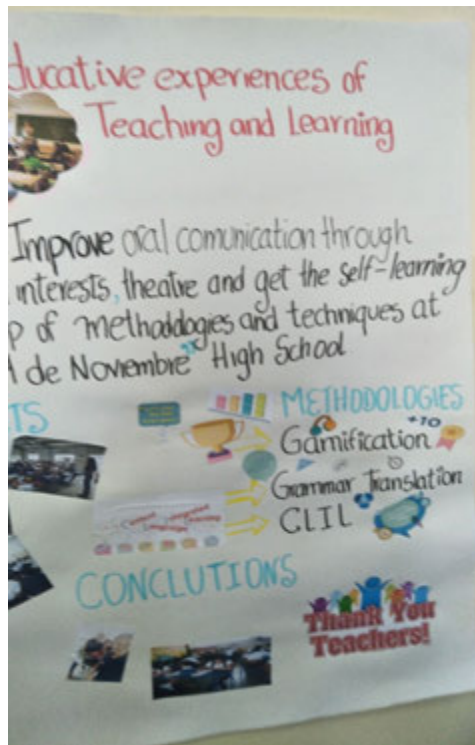 ducative experiences of
Teaching and Learning
Improve oral comunication through
interests, theatre and get the self-learning
p of methodologies and techniques at
de Noviembre" High School
TS
METHODOLOGIES
+10
Gamification
Grammar Translation
CLIL
CONCLUTIONS
Thank You
Teachers!